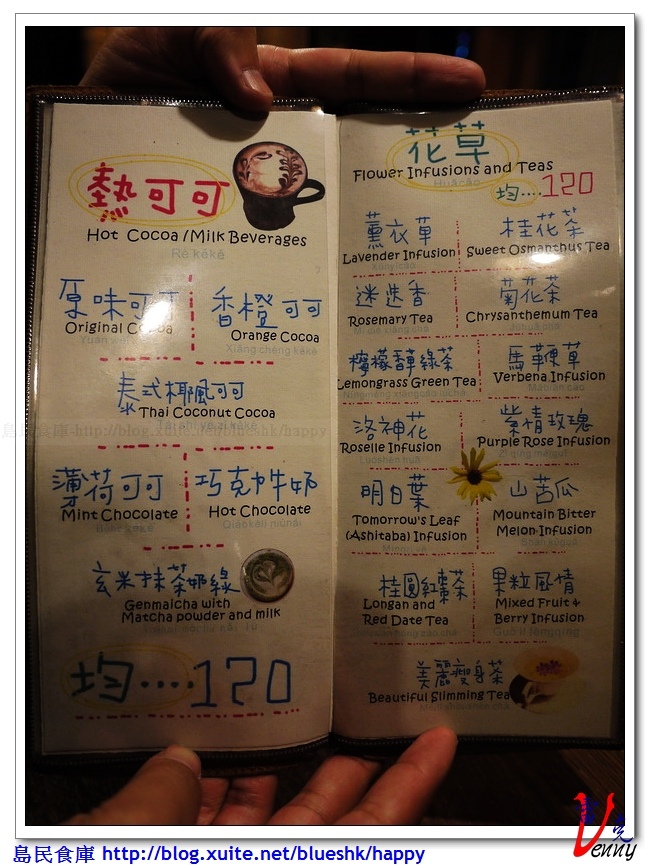 熱可可
Hot Cocoa/Milk Beverages
Rè kěkě
原味可可
Original Cocoa
香橙可可
Orange Cocoa
Xiāng chéng kěkě
泰式椰風可可
Thai Coconut Cocoa
Tài shì yé zi kěkě
薄荷可可
Mint Chocolate
Bòhé kěkě
巧克力牛奶
Hot Chocolate
Qiǎokèlì niúnǎi
玄米抹茶奶綠
Genmaicha with
Matcha powder and milk
均....120
花草
Flower Infusions and Teas
Huācǎo
均....120
薰衣草
Lavender Infusion
桂花茶
Sweet Osmanthus Tea
迷迭香
Rosemary Tea
Mí dié xiāng chá
菊花茶
Chrysanthemum Tea
Júhuā chá
檸檬香草綠茶
Lemongrass Green Tea
馬鞭草
Verbena Infusion
Mǎ biān cǎo
洛神花
Roselle Infusion
Luòshén huā
紫情玫瑰
Purple Rose Infusion
Zǐ qíng méiguī
明日葉
Tomorrow's Leaf
(Ashitaba) Infusion
Míngrì yè
山苦瓜
Mountain Bitter
Melon Infusion
Shān kǔguā
桂圓紅棗茶
Longan and
Red Date Tea
果粒風情
Mixed Fruit +
Berry Infusion
Guǒ lì fēngqíng
美麗瘦身茶
Beautiful Slimming Tea
島民食庫-http://blog.xuite.net/blueshk/happy
Venny
島民食庫 http://blog.xuite.net/blueshk/happy